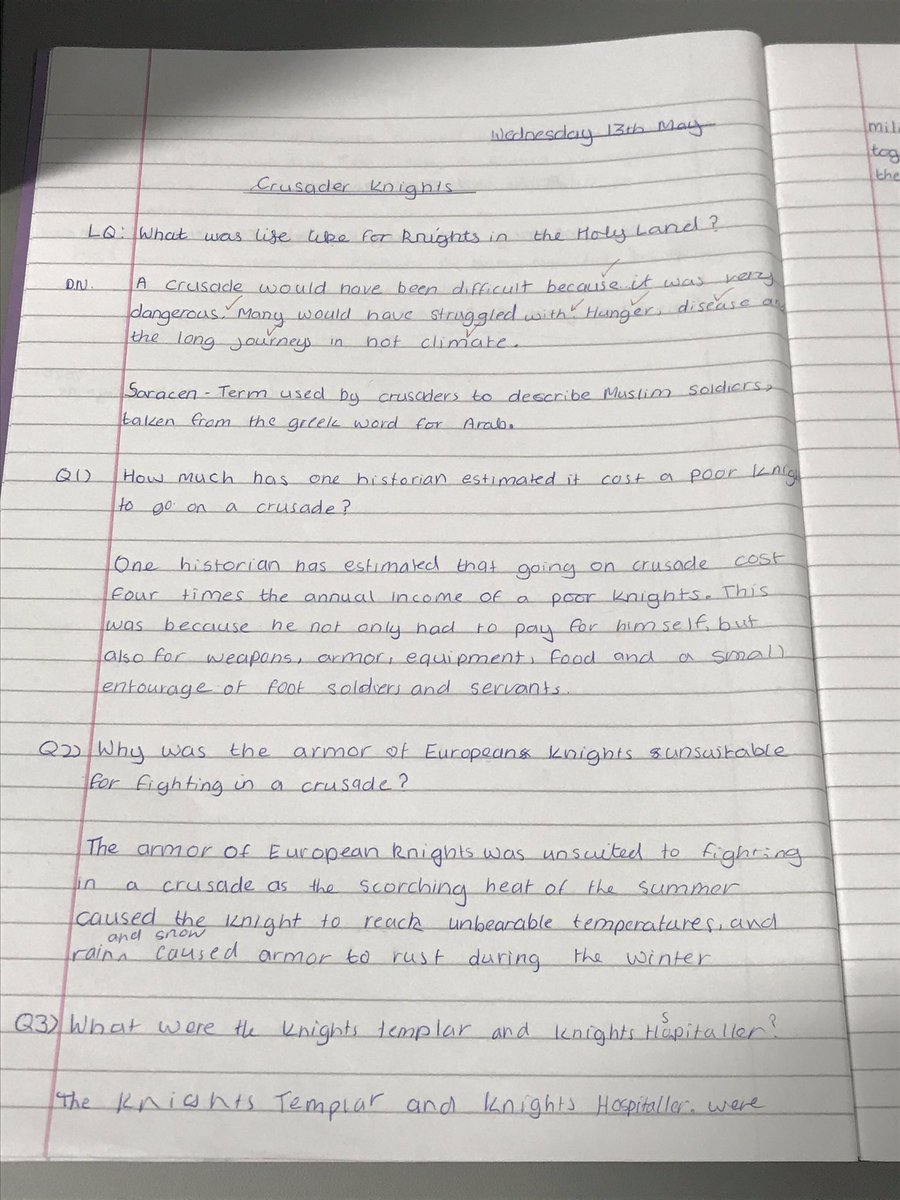 Wednesday 13th May
Crusader Knights
LQ: What was life like for knights in the Holy Land?
DN. A crusade would have been difficult because it was very
dangerous. Many would have struggled with Hunger, disease
the long journeys in hot climate.
Saracen - Term used by crusaders to describe Muslim soldiers,
taken from the greek word for Arab.
Q1) How much has one historian estimated it cost a poor
to go on a crusade?
One historian has estimated that going on crusade cost
four times the annual income of a poor knights. This
was because he not only had to pay for himself, but
also for weapons, armor, equipment, food and a small
entourage of foot soldiers and servants.
Q2) Why was the armor of Europeans knights unsuitable
for fighting in a crusade?
The armor of European knights was unsuited to fighting
in a crusade as the scorching heat of the summer
caused the knight to reach unbearable temperatures, and
rain and snow caused armor to rust during the winter
Q3) What were the knights templar and knights Hospitaller?
The Knights Templar and Knights Hospitaller. were
the